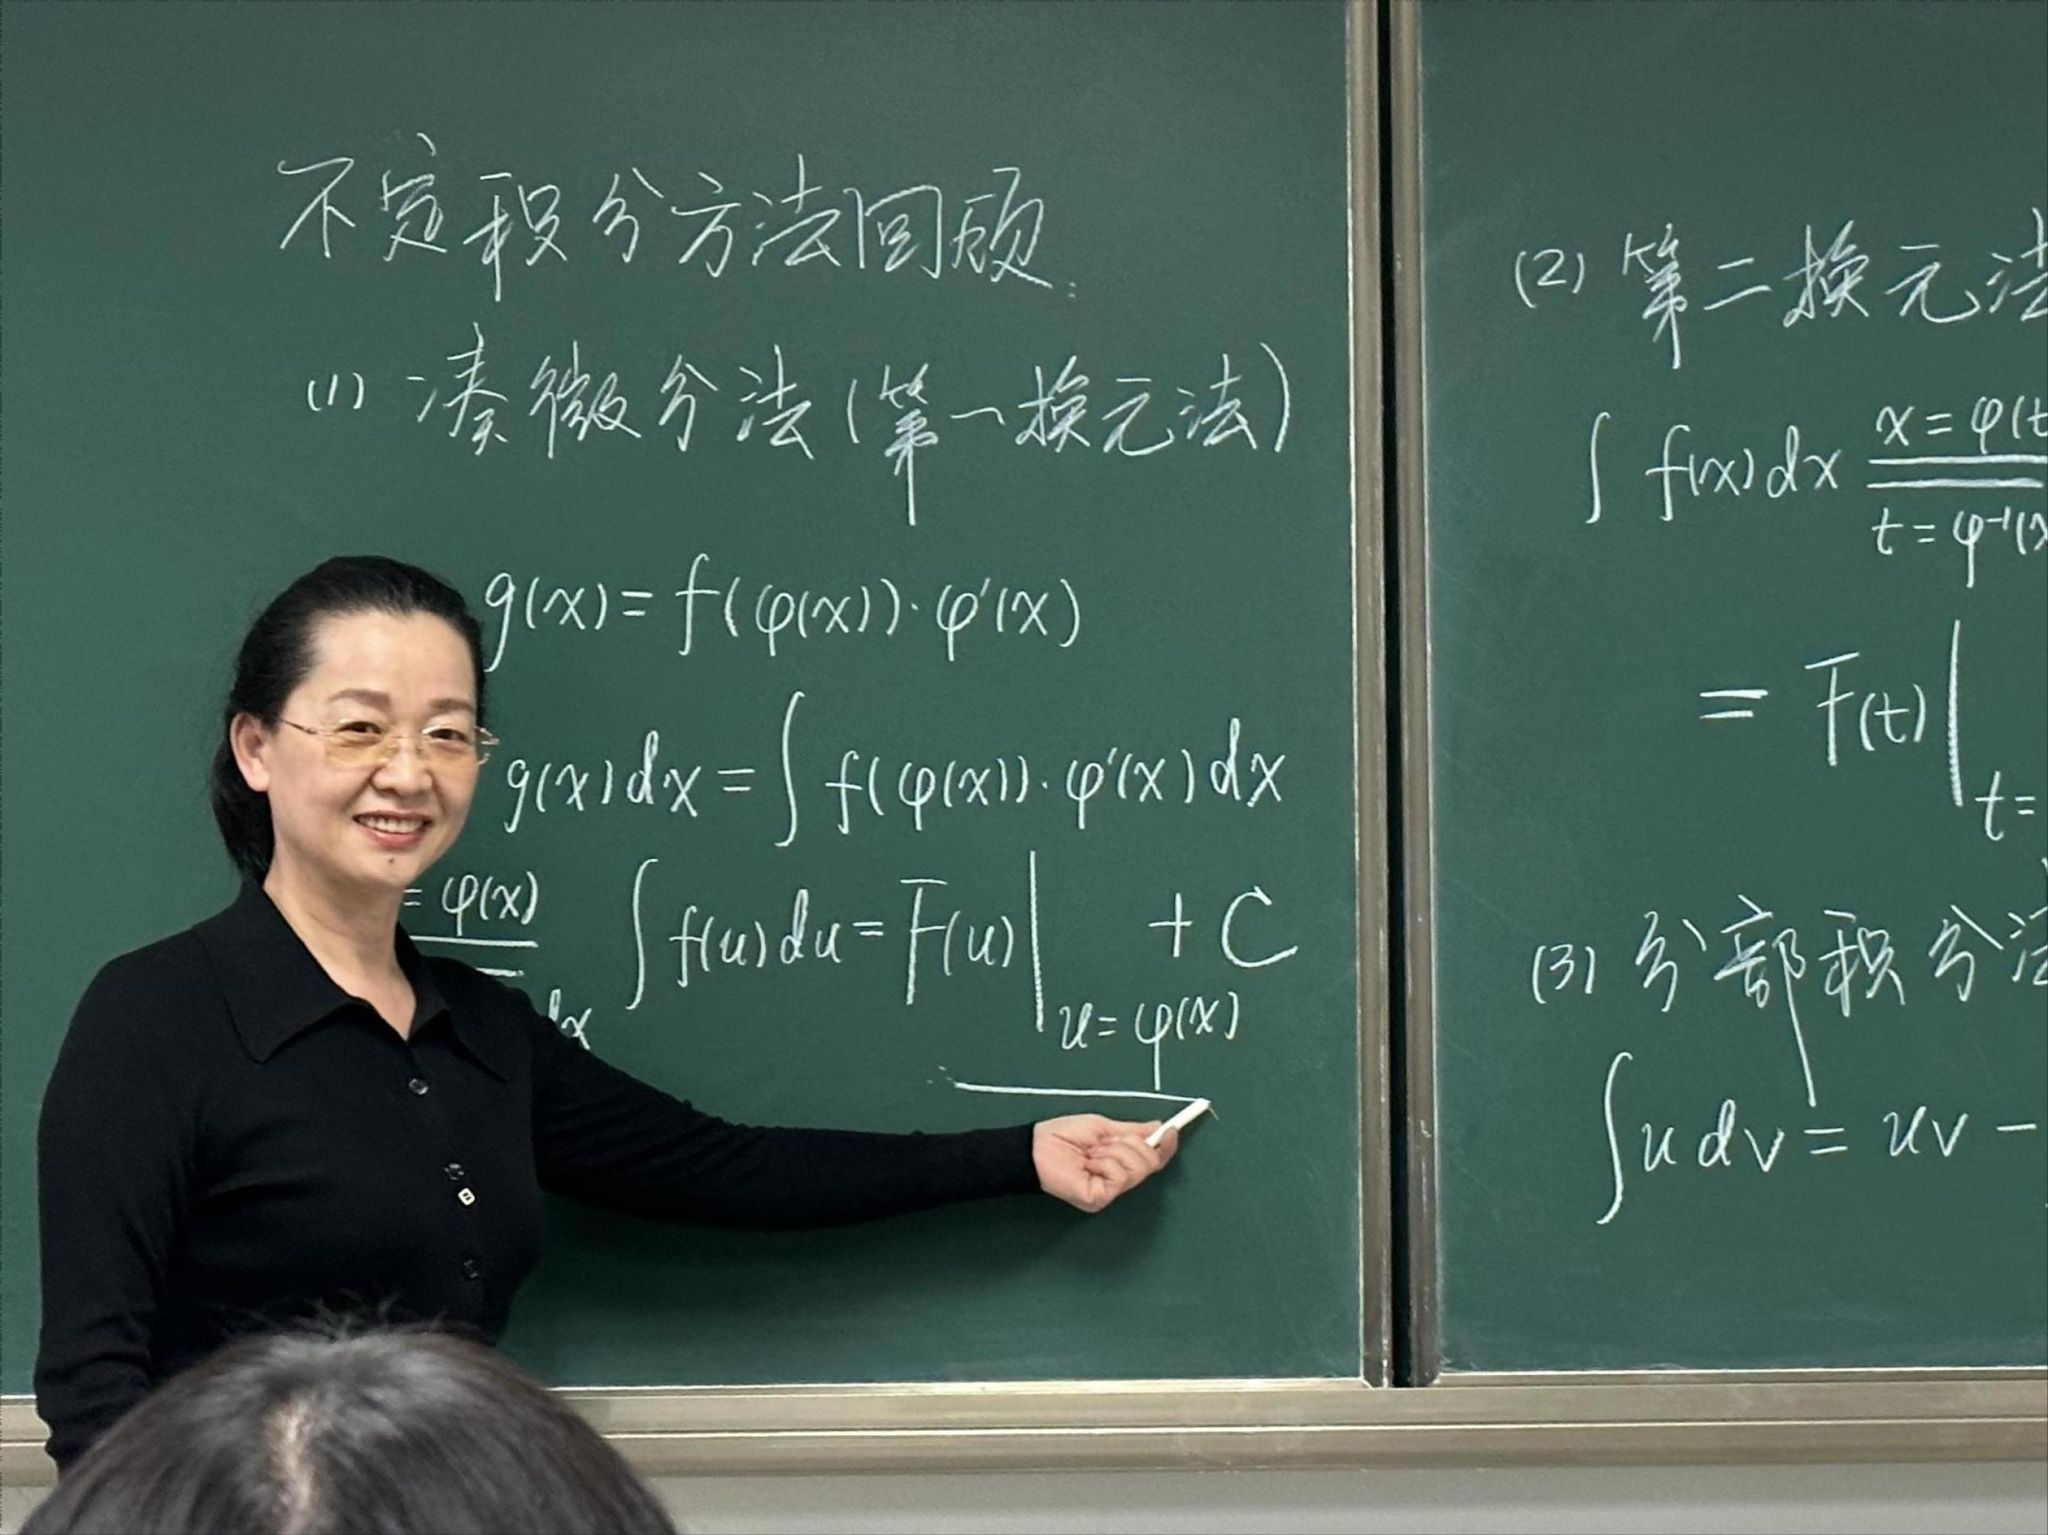 不定积分方法回顾:
(1) 凑微分法(第一换元法)
g(x)=f(φ(x))·φ'(x)
g(x)dx=∫f(φ(x))·φ'(x)dx
=φ(x) ∫f(u)du=F(u)| +C
dx u=φ(x)
(2) 第二换元法
∫f(x)dx x=φ(t
t=φ⁻¹(x
=F(t)|
t=
(3) 分部积分法
∫udv=uv-